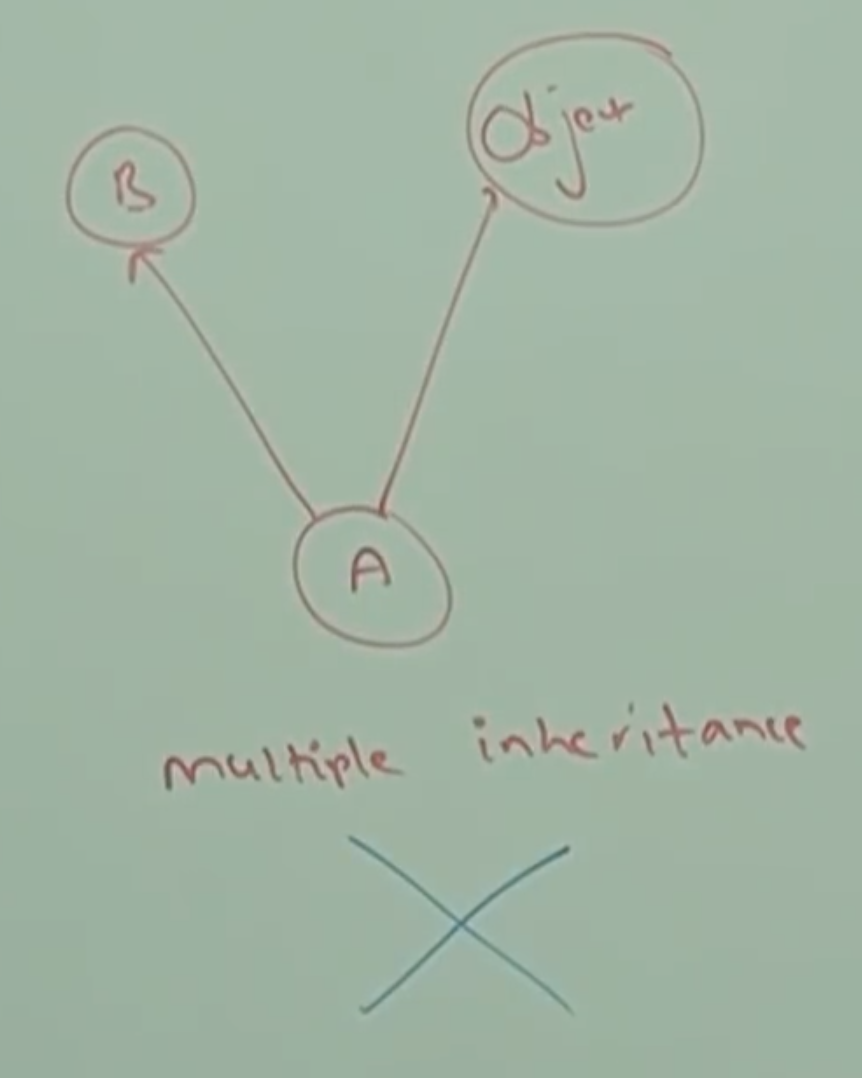 Object
B
A
multiple inheritance